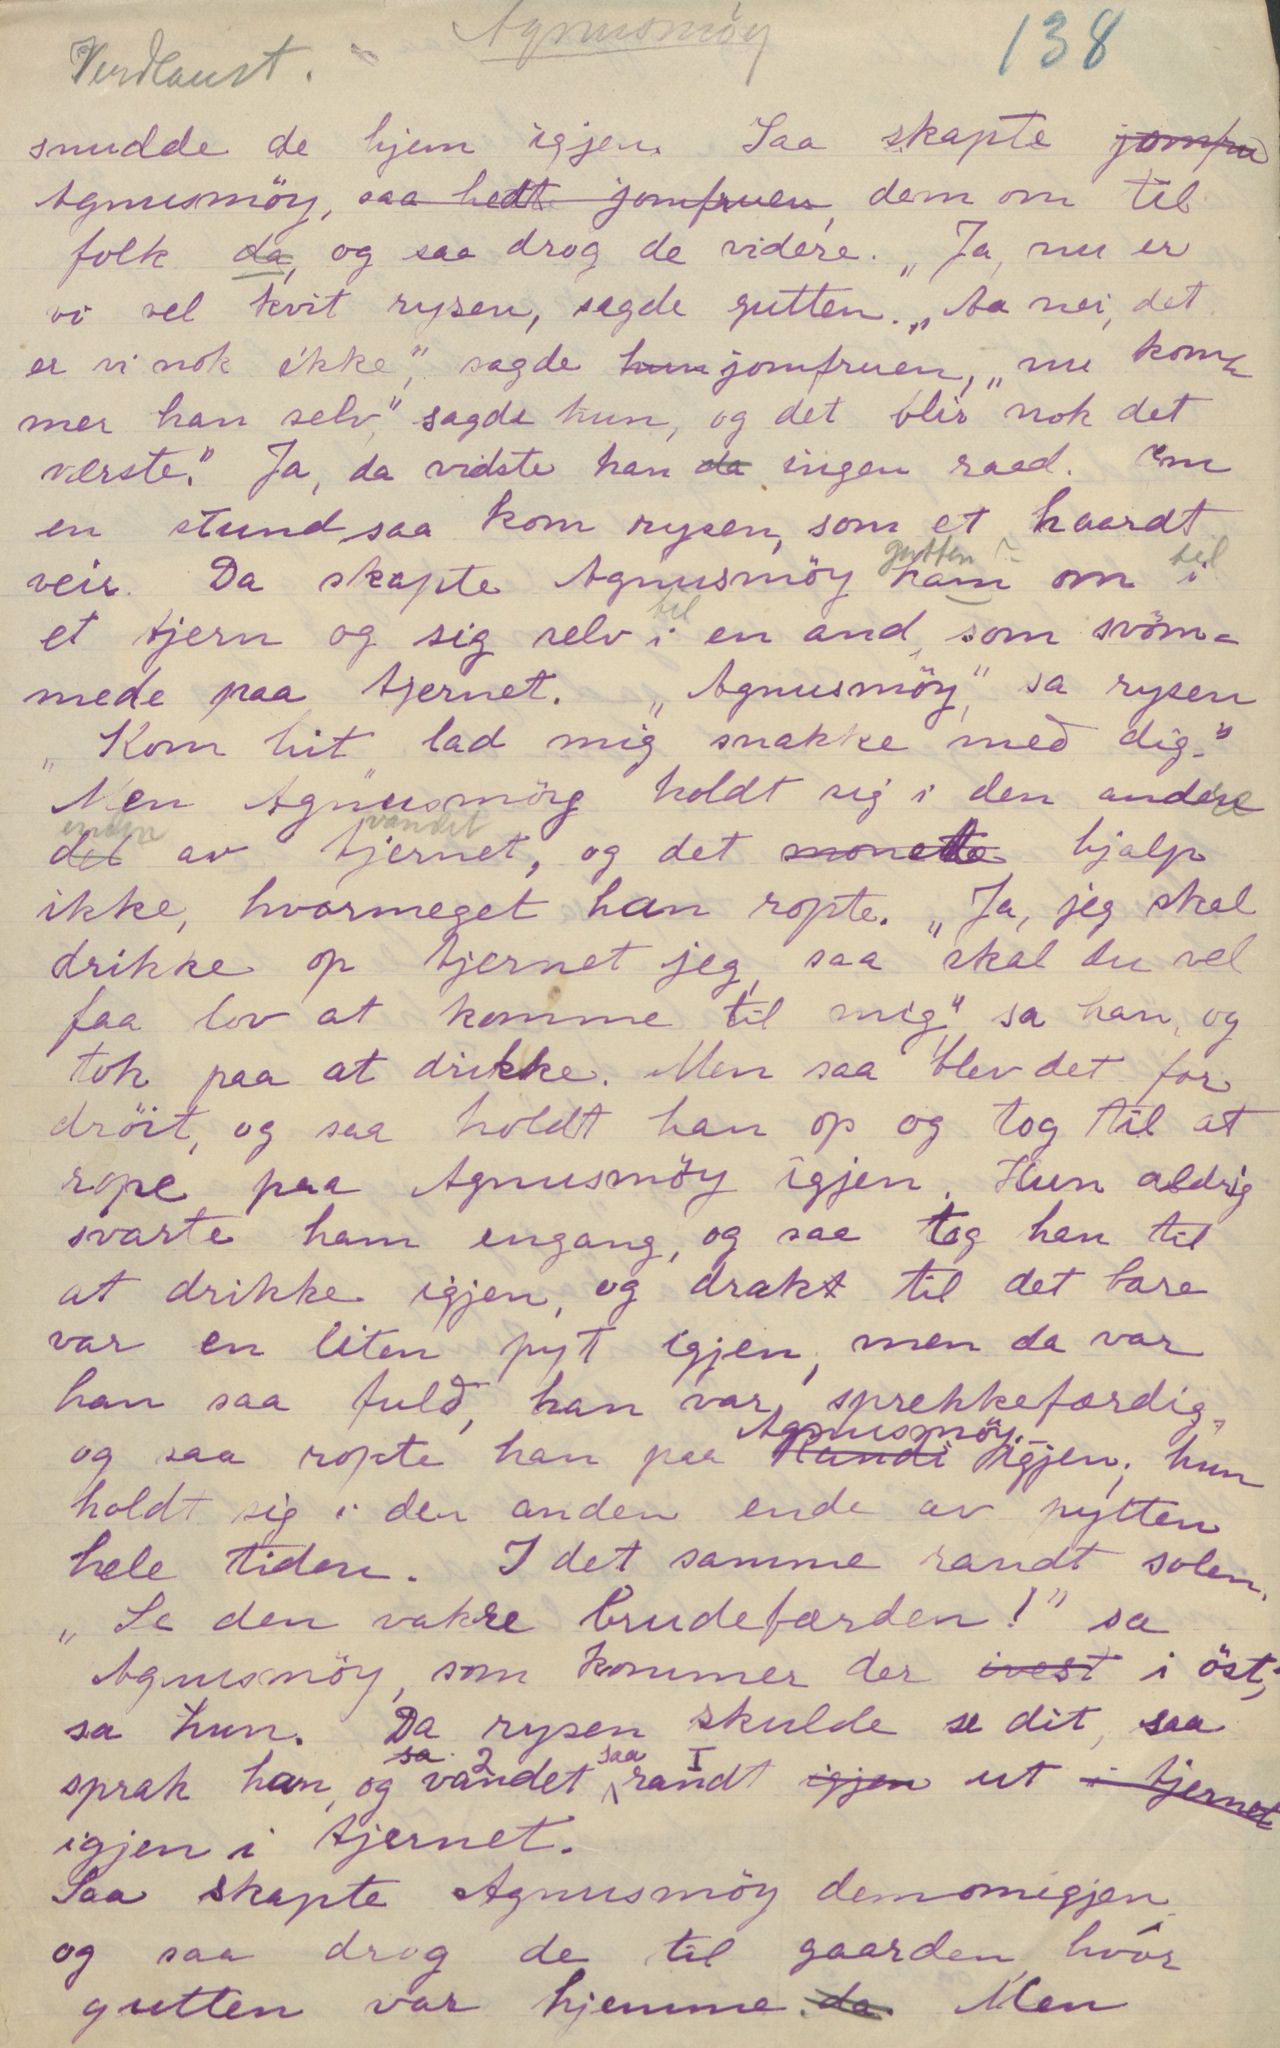 Agnusmöy
138
Verdlaust.
snudde de hjem igjen. Saa skapte jomfru
Agnusmöy, saa hedt jomfruen, dem om til
folk da, og saa drog de videre. „Ja, nu er
vi vel kvit rysen, sagde gutten. „Aa nei, det
er vi nok ikke," sagde hun jomfruen, „nu kom-
mer han selv," sagde hun, og det blir nok det
værste." Ja, da vidste han da ingen raad. Om
en stund saa kom rysen, som et haardt
gutten til
veir. Da skapte Agnusmöy ham om i
til
et tjern og sig selv i en and, som svöm-
mede paa tjernet. „Agnusmöy," sa rysen
„Kom hit lad mig snakke med dig."
Men Agnusmöy holdt sig i den andre
enden vandet
del av tjernet, og det monette hjalp
ikke, hvormeget han ropte. „Ja, jeg skal
drikke op tjernet jeg, saa skal du vel
faa lov at komme til mig," sa han, og
tok paa at drikke. Men saa blev det for
dröit, og saa holdt han op og tog til at
rope paa Agnusmöy igjen. Hun aldrig
svarte ham engang, og saa tog han til
at drikke igjen, og drakt til det bare
var en liten pyt igjen, men da var
han saa fuld, han var sprekkefærdig,
Agnusmöy
og saa ropte han paa Randi igjen, hun
holdt sig i den anden ende av pytten
hele tiden. I det samme randt solen.
„Se den vakre brudefærden!" sa
Agnusmöy, som kommer der ivest i öst,"
sa hun. Da rysen skulde se dit, saa
sa 2 saa I
sprak han, og vandet randt igjen ut i tjernet
igjen i tjernet.
Saa skapte Agnusmöy dem om igjen
og saa drog de til gaarden, hvor
gutten var hjemme da. Men